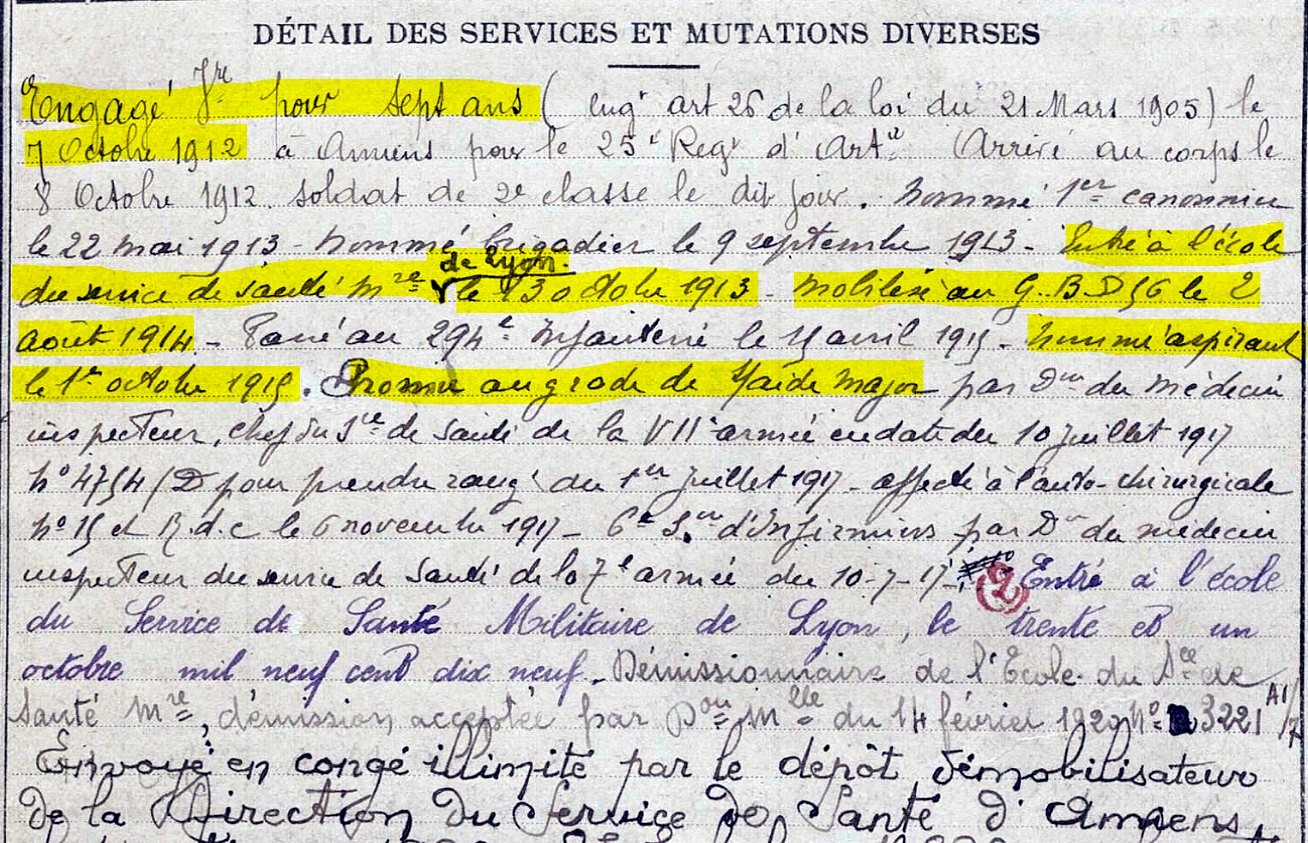 DÉTAIL DES SERVICES ET MUTATIONS DIVERSES
Engagé Vre pour sept ans (engt art 26 de la loi du 21 Mars 1905) le
7 Octobre 1912 à Amiens pour le 25e Regt d'Artie. Arrivé au corps le
8 Octobre 1912. soldat de 2e classe le dit jour. Nommé 1er canonnier
le 22 mai 1913 - Nommé brigadier le 9 septembre 1913 - Entré à l'école
de Lyon.
du service de santé mre le 13 octobre 1913 - Mobilisé au G.B.D 56 le 2
août 1914 - Passé au 294e Infanterie le 15 avril 1915 - Nommé aspirant
le 1er octobre 1915. Promu au grade de Yaide major par Don du Médecin
inspecteur, chef du Sce de santé de la VIIe armée en date du 10 juillet 1917
No 4754/D pour prendre rang du 1er juillet 1917 - affecté à l'auto-chirurgicale
No 15 et R.d.c le 6 novembre 1917 - 6e Son d'Infirmiers par Don du médecin
inspecteur du service de Santé de la 7e armée du 10-7-17. (2) Entré à l'école
du Service de Santé Militaire de Lyon, le trente et un
octobre mil neuf cent dix neuf. Démissionnaire de l'Ecole du Sce de
Santé Mre, démission acceptée par Don Mlle du 14 février 1920 No 3221 A1/7
Envoyé en congé illimité par le dépôt démobilisateur
de la Direction du Service de Santé d'Amiens